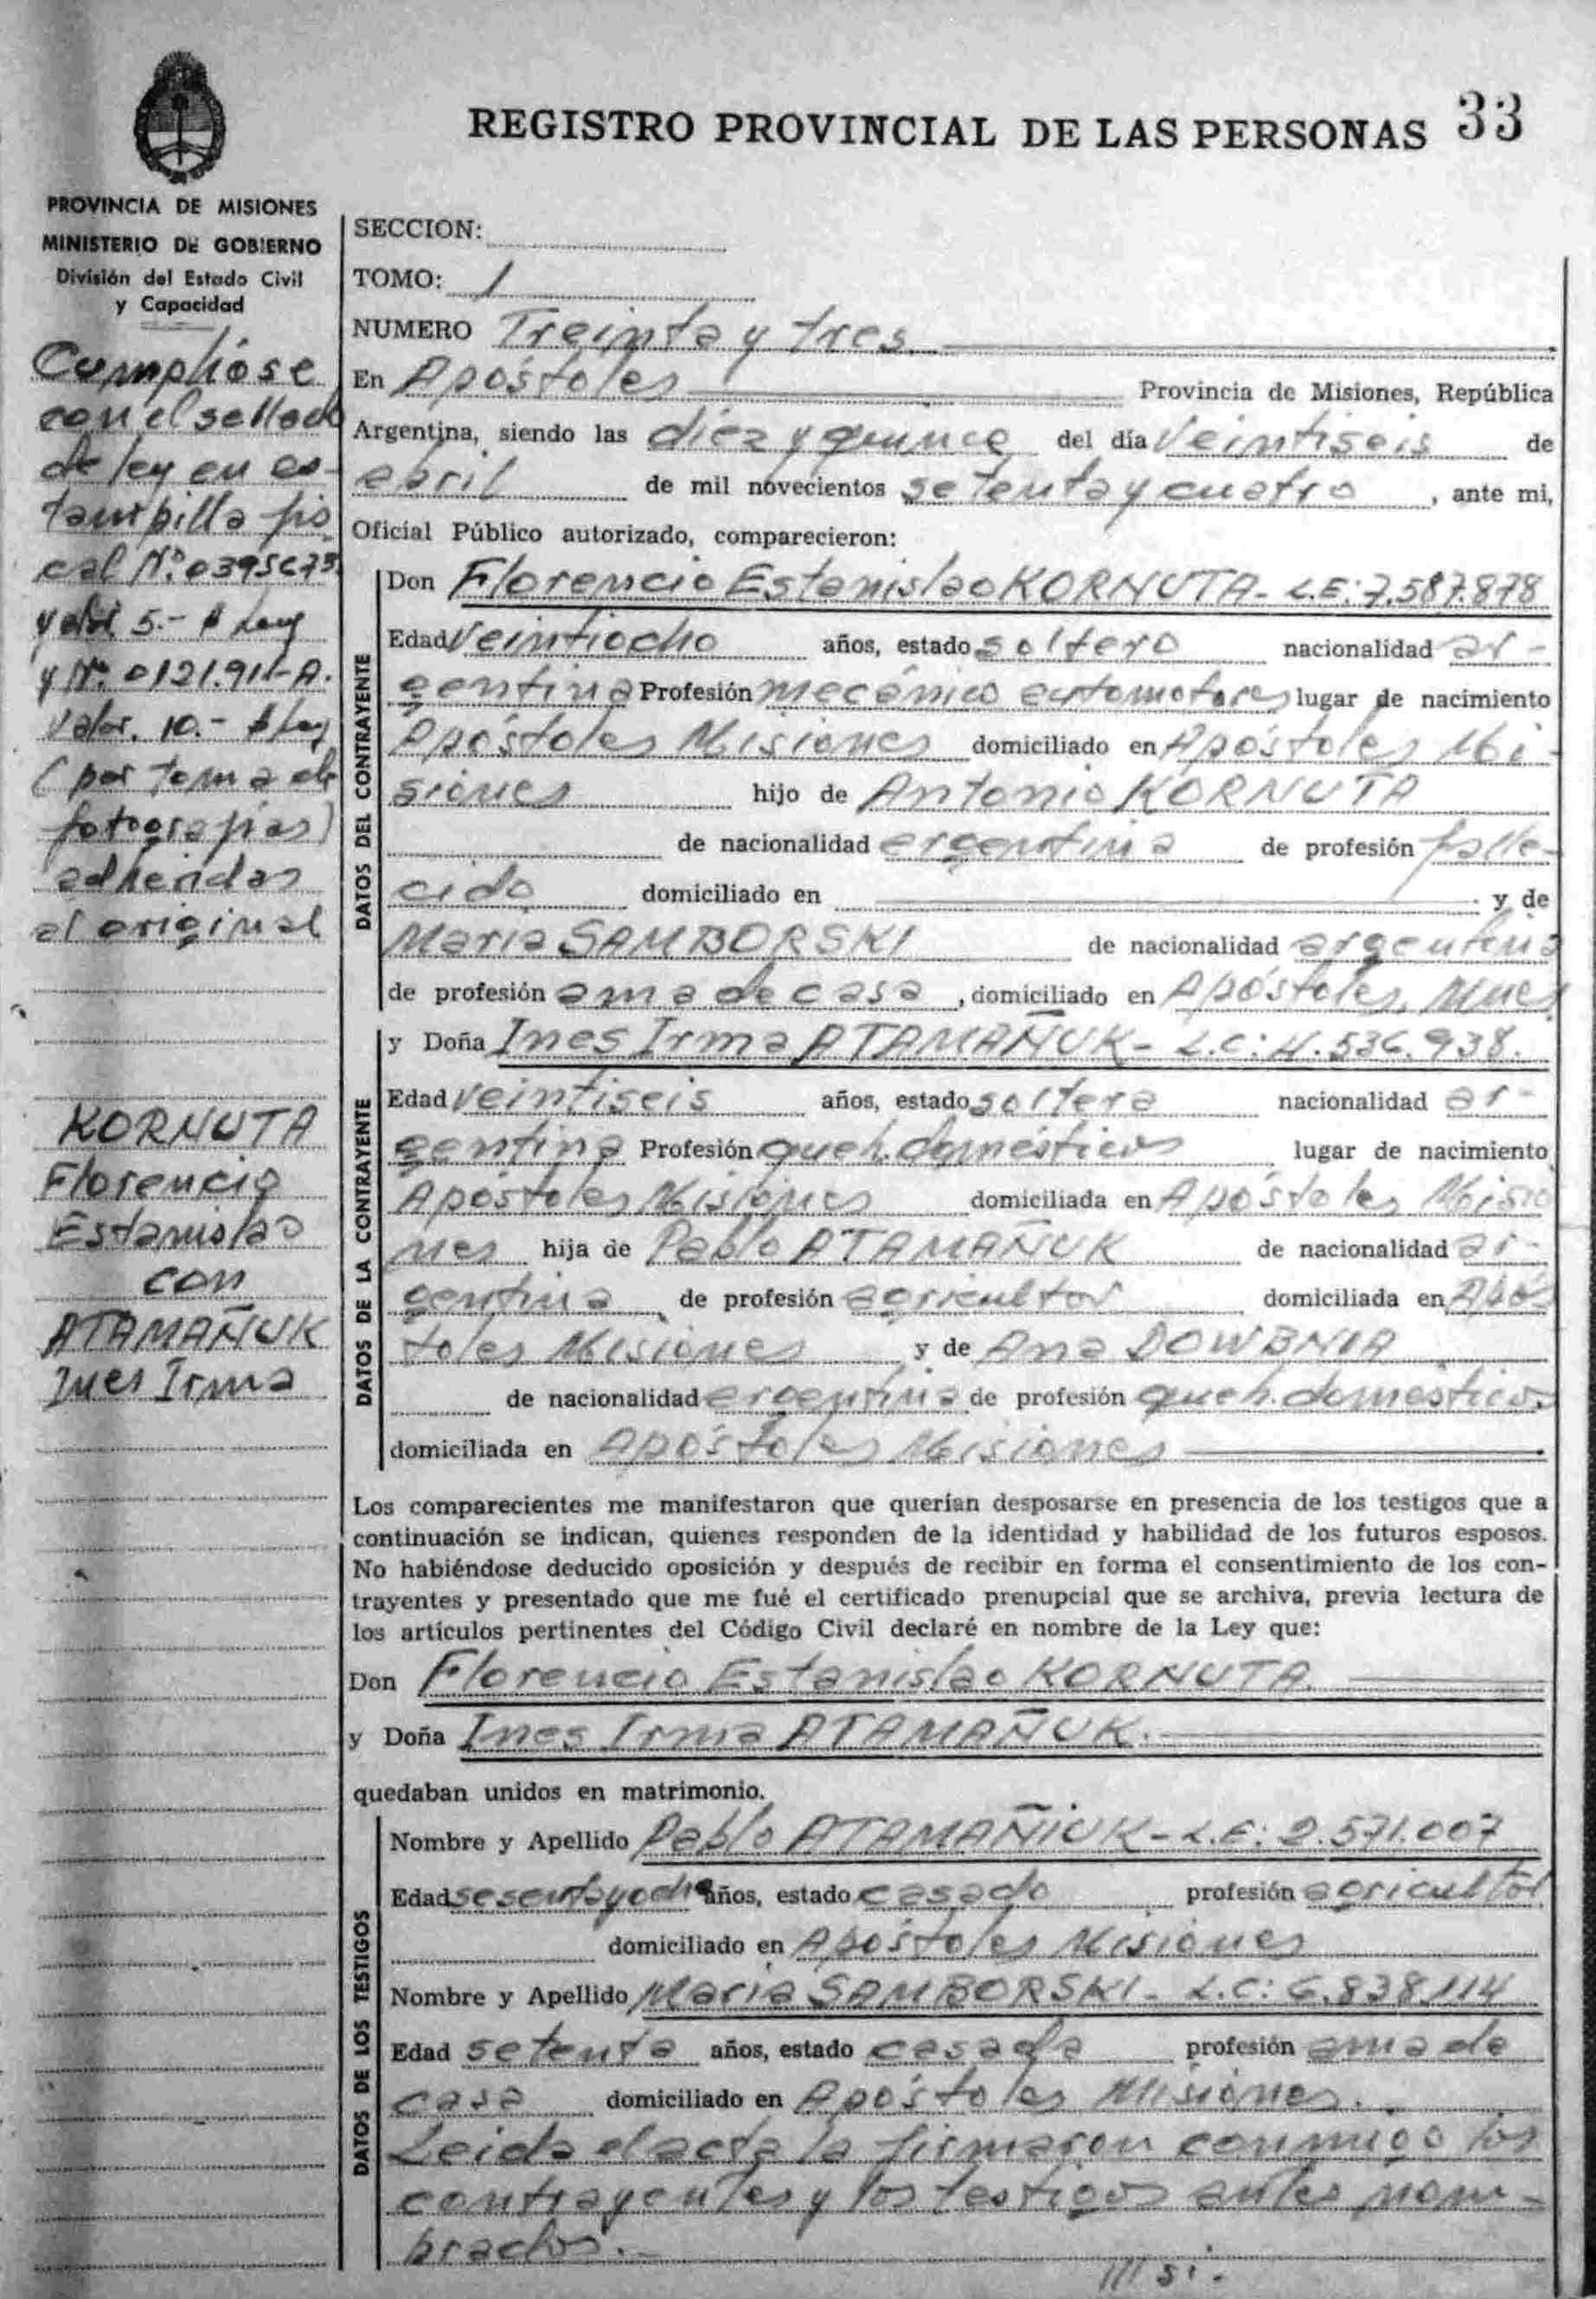 REGISTRO PROVINCIAL DE LAS PERSONAS 33
PROVINCIA DE MISIONES
MINISTERIO DE GOBIERNO
División del Estado Civil
y Capacidad
Cumplióse
con el sellado
de ley en es-
tampilla fis-
cal Nº 0395673
valor 5.- $ Ley
y Nº 0121.911-A.
Valor. 10.- $ Ley
(por toma de
fotografias)
adheridas
al original
KORNUTA
Florencio
Estanislao
con
ATAMAÑUK
Ines Irma
SECCION:
TOMO: 1
NUMERO Treinta y tres
En Apóstoles Provincia de Misiones, República
Argentina, siendo las diez y quince del día veintiseis de
abril de mil novecientos setenta y cuatro, ante mi,
Oficial Público autorizado, comparecieron:
DATOS DEL CONTRAYENTE
Don Florencio Estanislao KORNUTA- L.E: 7.587.878
Edad veintiocho años, estado soltero nacionalidad ar-
gentina Profesión mecánico automotores lugar de nacimiento
Apóstoles Misiones domiciliado en Apóstoles Mi-
siones hijo de Antonio KORNUTA
de nacionalidad argentina de profesión falle-
cido domiciliado en y de
Maria SAMBORSKI de nacionalidad argentina
de profesión ama de casa, domiciliado en Apóstoles, Mnes
DATOS DE LA CONTRAYENTE
y Doña Ines Irma ATAMAÑUK- L.C: 4.536.938.
Edad veintiseis años, estado soltera nacionalidad ar-
gentina Profesión queh. domésticos lugar de nacimiento
Apóstoles Misiones domiciliada en Apóstoles Misio
nes hija de Pablo ATAMAÑUK de nacionalidad ar-
gentina de profesión agricultor domiciliada en Após
toles Misiones y de Ana DOWBNIA
de nacionalidad argentina de profesión queh. domésticos
domiciliada en Apóstoles Misiones
Los comparecientes me manifestaron que querían desposarse en presencia de los testigos que a
continuación se indican, quienes responden de la identidad y habilidad de los futuros esposos.
No habiéndose deducido oposición y después de recibir en forma el consentimiento de los con-
trayentes y presentado que me fué el certificado prenupcial que se archiva, previa lectura de
los artículos pertinentes del Código Civil declaré en nombre de la Ley que:
Don Florencio Estanislao KORNUTA
y Doña Ines Irma ATAMAÑUK.
quedaban unidos en matrimonio.
DATOS DE LOS TESTIGOS
Nombre y Apellido Pablo ATAMAÑIUK- L.E: 2.571.007
Edad sesentayocho años, estado casado profesión agricultor
domiciliado en Apóstoles Misiones
Nombre y Apellido Maria SAMBORSKI- L.C: 6.838.114
Edad setenta años, estado casada profesión ama de
casa domiciliado en Apóstoles Misiones.
Leida el acta la firmaron conmigo los
contrayentes y los testigos antes nom-
brados.-